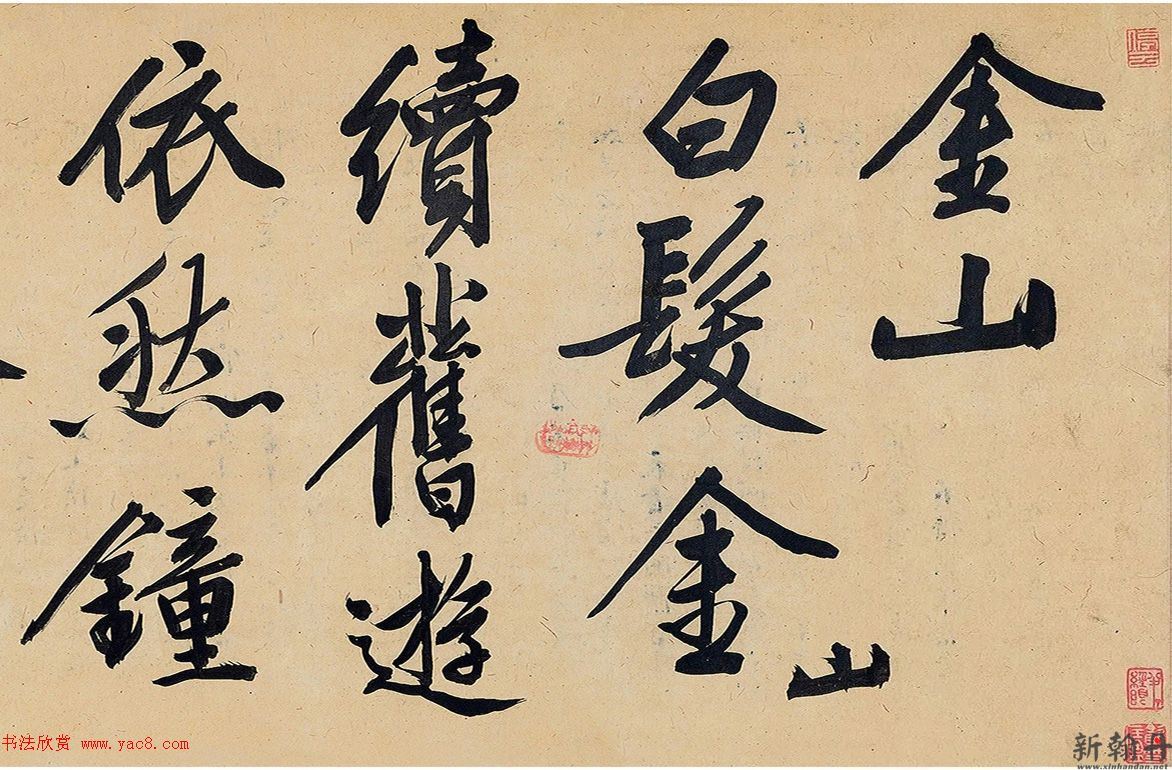 金山
白髮金山
續舊遊
依然鐘
书法欣赏 www.yac8.com
新翰丹
www.xinhandan.net